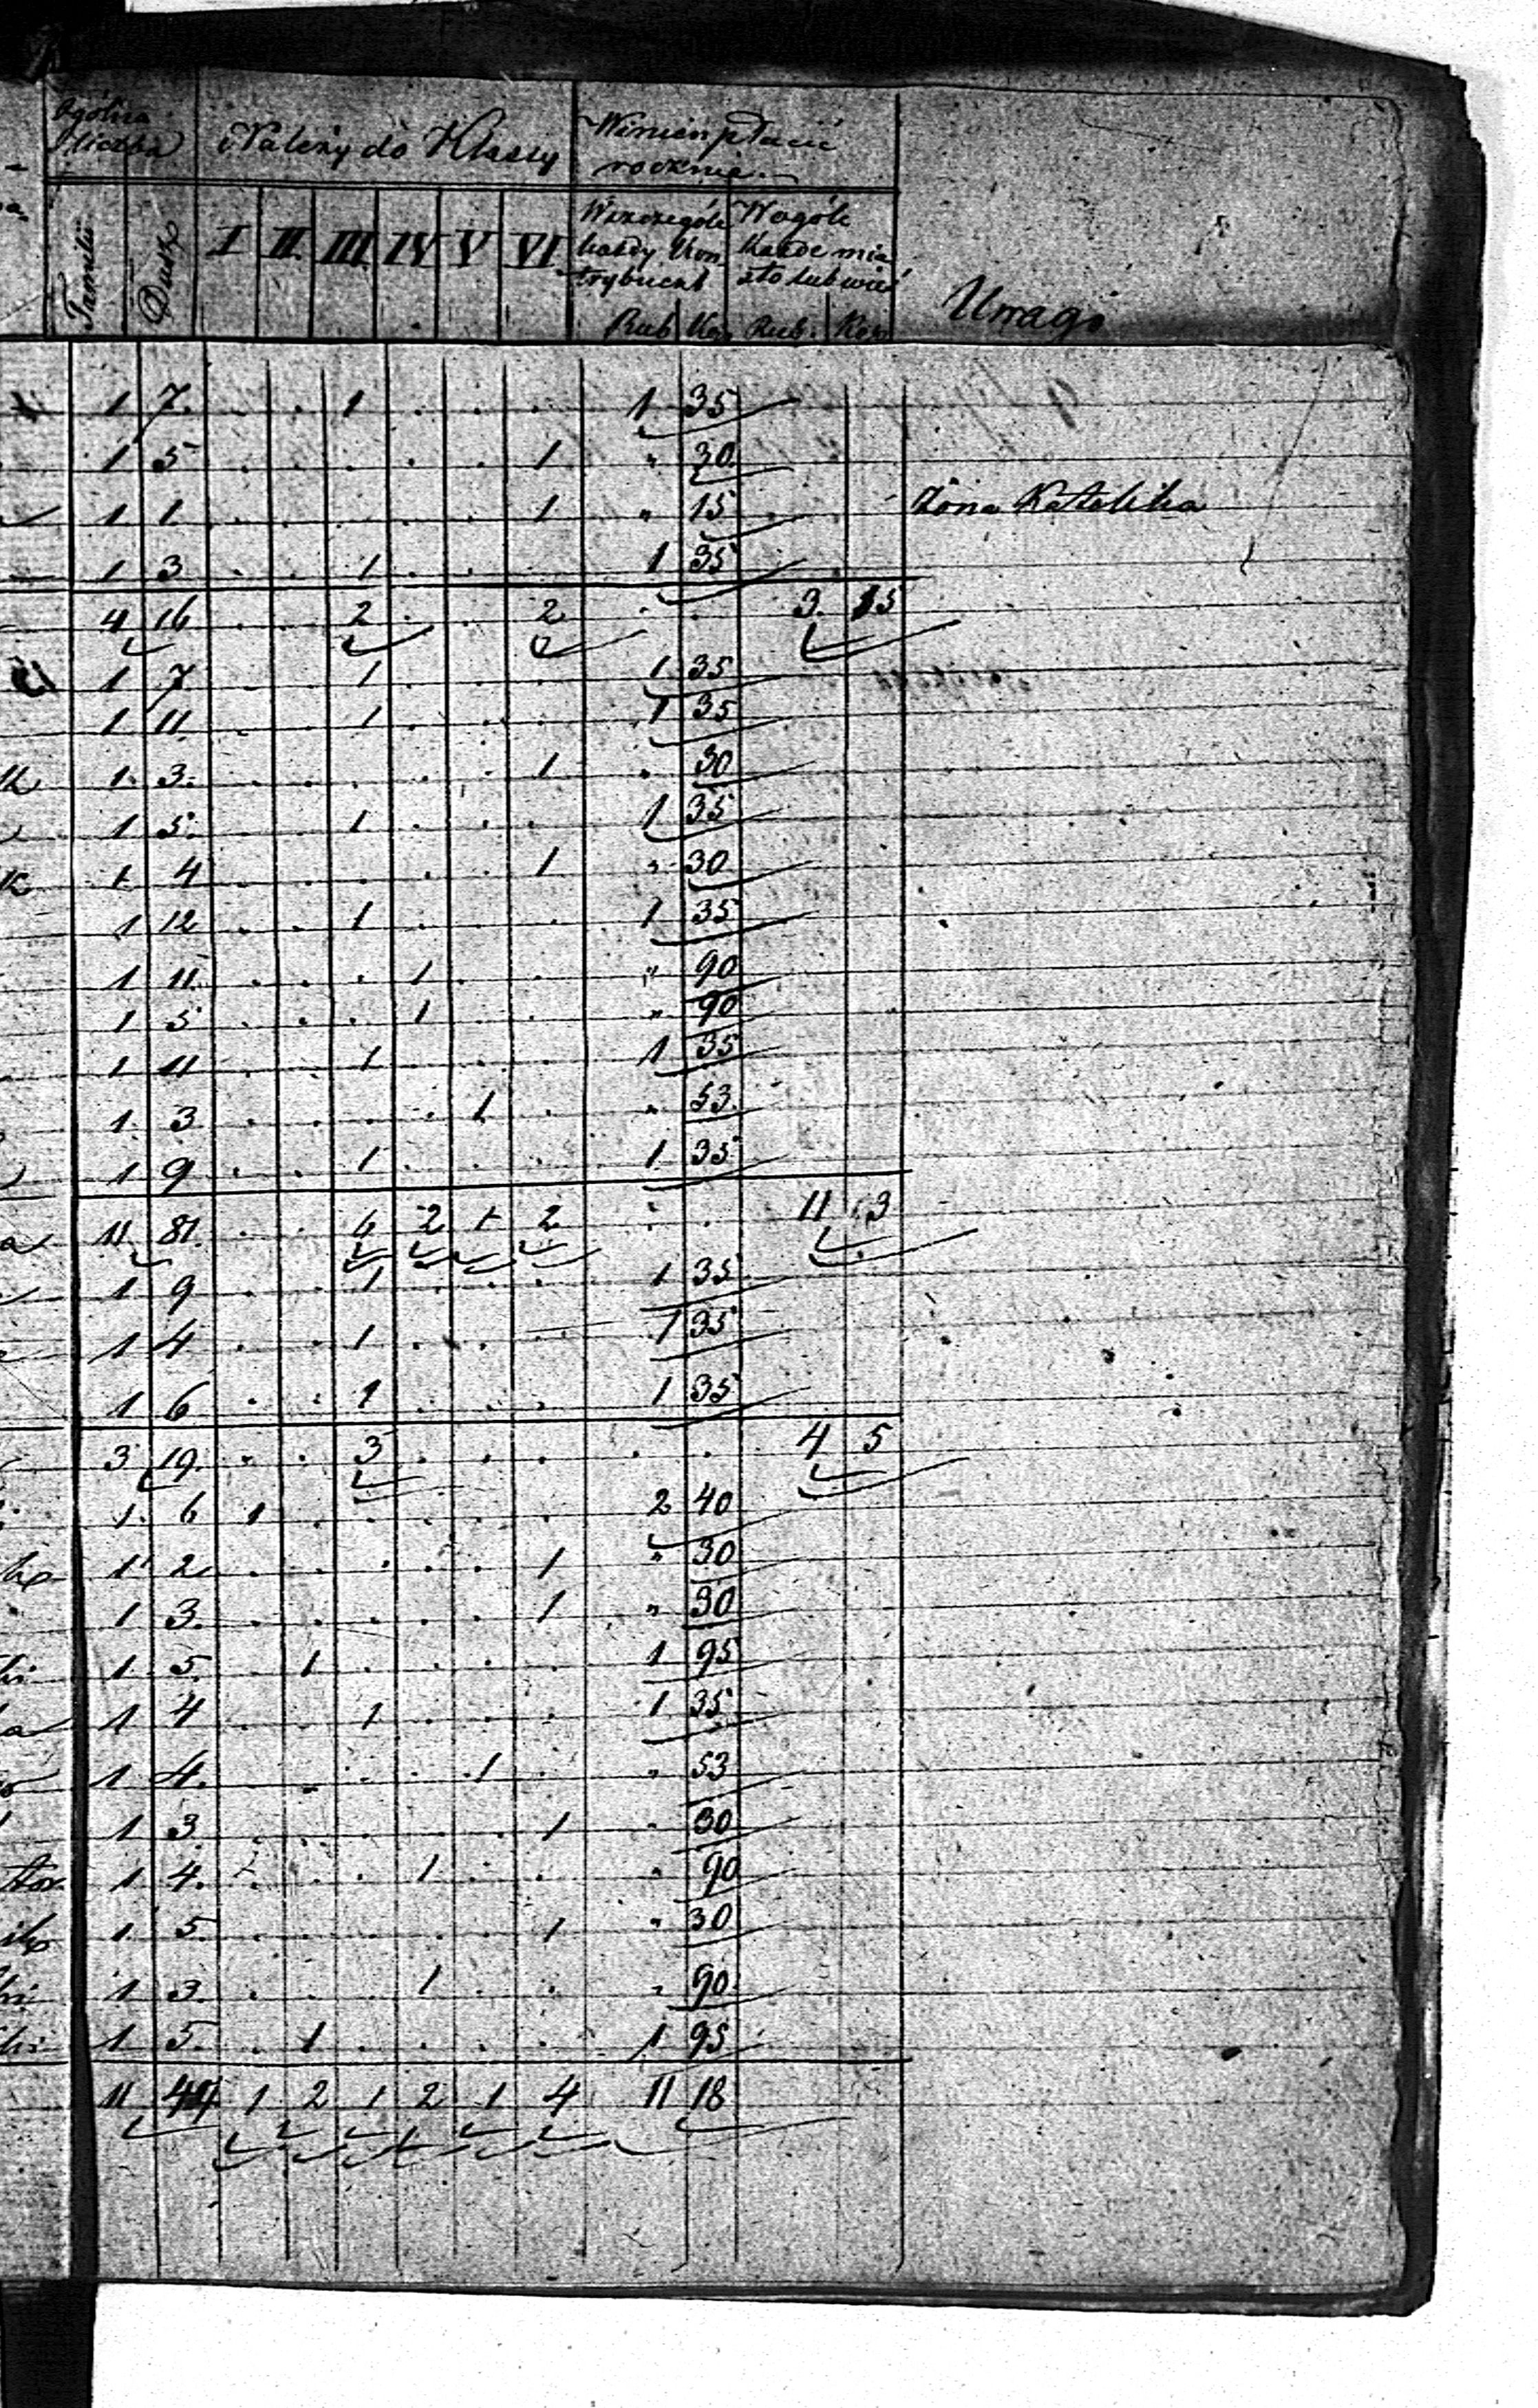 Ogólna liczba | Należy do Klassy | Winien płacić rocznie | Uwagi
Familii | Dusz | I | II | III | IV | V | VI | W szczególe każdy Kontrybuent | W ogóle każde miasto lub wieś
Rub | Kop | Rub. | Kop
1 7. . . 1 . . . 1 35
1 5 . . . . . 1 " 30
1 1 . . . . . 1 " 15 Żona Katolika
1 3 . . 1 . . . 1 35
4 16 . . 2 . . 2 . . 3. 15
1 7 . . 1 . . . 1 35
1 11 . . 1 . . . 1 35
1. 3. . . . . . 1 . 30
1 5. . . 1 . . . 1 35
1 4 . . . . . 1 " 30
1 12 . . 1 . . . 1 35
1 11 . . . 1 . . " 90
1 5 . . . 1 . . " 90
1 11 . . 1 . . . 1 35
1. 3 . . . . 1 . " 53.
1 9 . . 1 . . . 1 35
11 81 . . 6 2 1 2 . . 11 3
1 9 . . 1 . . . 1 35
1 4 . . 1 . . . 1 35
1 6 . . 1 . . . 1 35
3 19. . . 3 . . . . . 4 5
1. 6 1 . . . . . 2 40
1 2 . . . . . 1 " 30
1 3. . . . . . 1 " 30
1 5 . 1 . . . . 1 95
1 4 . . 1 . . . 1 35
1 4. . . . . 1 . " 53
1 3 . . . . . 1 " 30
1 4. . . . 1 . . " 90
1 5 . . . . . 1 " 30
1 3. . . . 1 . . " 90.
1 5. . 1 . . . . 1 95
11 44 1 2 1 2 1 4 11 18